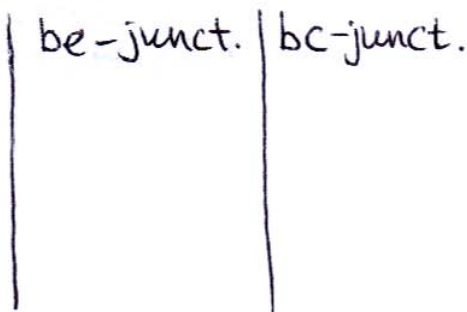 be-junct. bc-junct.